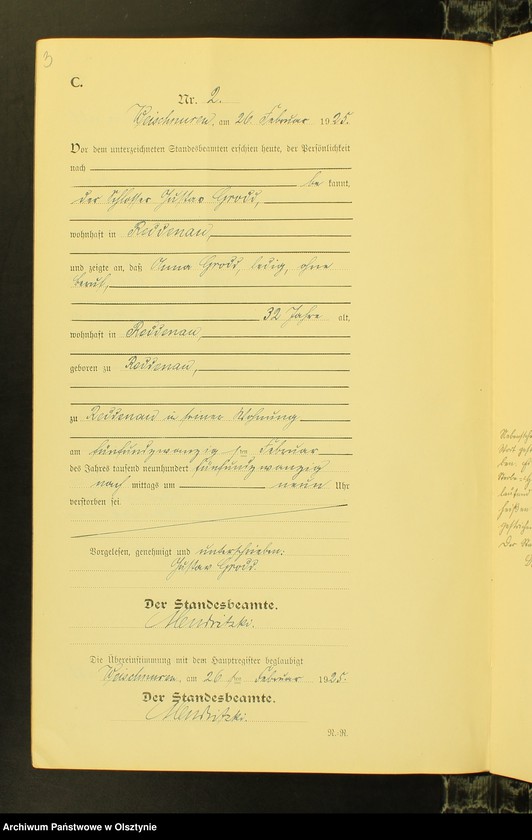 3
C.
Nr. 2.
Weischnuren, am 26 Februar 1925.
Vor dem unterzeichneten Standesbeamten erschien heute, der Persönlichkeit
nach
be kannt,
der Schlosser Gustav Grodd,
wohnhaft in Reddenau,
und zeigte an, daß Anna Grodd, ledig, ohne
Beruf,
32 Jahre alt,
wohnhaft in Reddenau,
geboren zu Reddenau,
zu Reddenau in seiner Wohnung
am fünfundzwanzigsten Februar
des Jahres tausend neunhundert fünfundzwanzig
nach mittags um neun Uhr
verstorben sei.
Vorgelesen, genehmigt und unterschrieben:
Gustav Grodd.
Der Standesbeamte.
Mendritzki.
Die Übereinstimmung mit dem Hauptregister beglaubigt
Weischnuren, am 26 ten Februar 1925.
Der Standesbeamte.
Mendritzki.
N.-R.
Archiwum Państwowe w Olsztynie